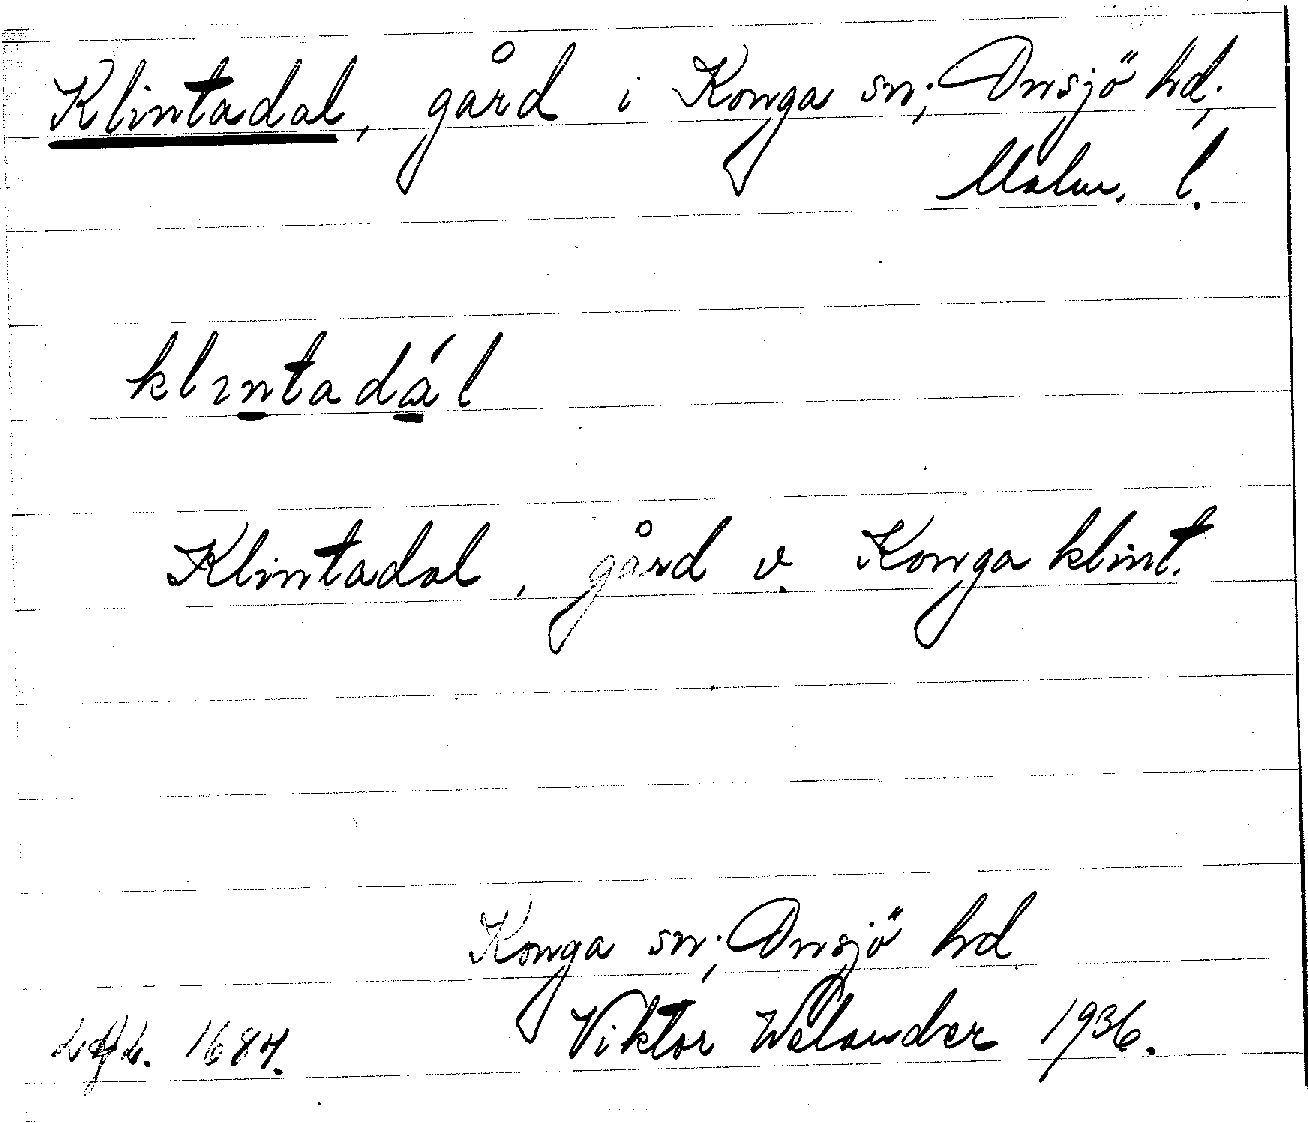 Klintadal, gård i Konga sn; Onsjö hd;
Malm. l.
klıntadál
Klintadal, gård v. Konga klint.
Konga sn; Onsjö hd
1684. Viktor Welander 1936.